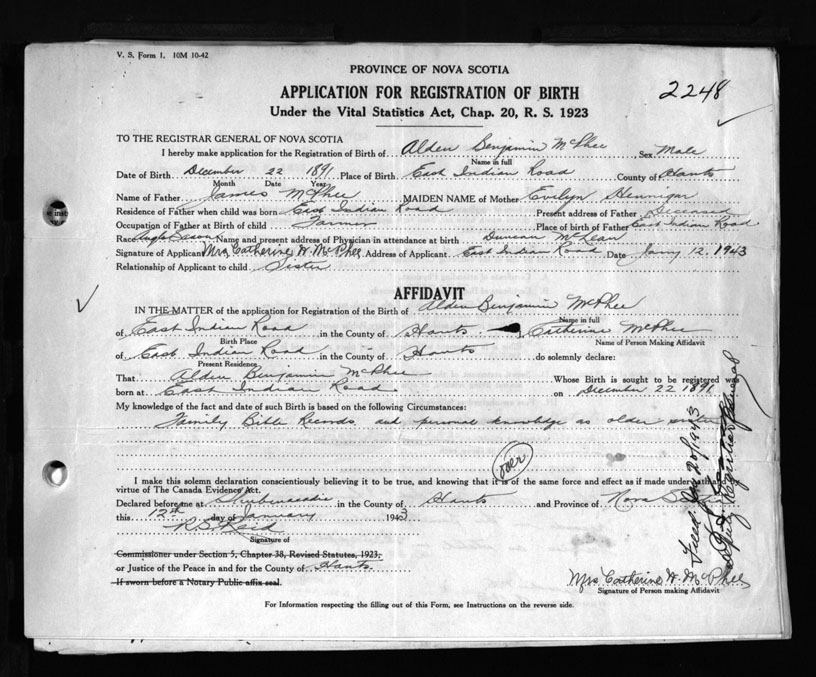 V. S. Form 1. 10M 10-42
PROVINCE OF NOVA SCOTIA
APPLICATION FOR REGISTRATION OF BIRTH
2248
Under the Vital Statistics Act, Chap. 20, R. S. 1923
TO THE REGISTRAR GENERAL OF NOVA SCOTIA
I hereby make application for the Registration of Birth of Alden Benjamin McPhee Sex Male
Name in full
Date of Birth December 22 1891 Place of Birth East Indian Road County of Hants
Month Date Year
Name of Father James McPhee MAIDEN NAME of Mother Evelyn Hennigar
Residence of Father when child was born East Indian Road Present address of Father Deceased
Occupation of Father at Birth of child Farmer Place of birth of Father East Indian Road
Race Anglo Saxon Name and present address of Physician in attendance at birth Duncan McLean
Signature of Applicant Mrs Catherine H. McPhee Address of Applicant East Indian Road Date Jany 12. 1943
Relationship of Applicant to child Sister
AFFIDAVIT
IN THE MATTER of the application for Registration of the Birth of Alden Benjamin McPhee
Name in full
of East Indian Road in the County of Hants. I, Catherine McPhee
Birth Place Name of Person Making Affidavit
of East Indian Road in the County of Hants do solemnly declare:
Present Residence
That Alden Benjamin McPhee Whose Birth is sought to be registered was
born at East Indian Road. on December 22 1891
My knowledge of the fact and date of such Birth is based on the following Circumstances:
Family Bible Records and personal knowledge as older sister
over
I make this solemn declaration conscientiously believing it to be true, and knowing that it is of the same force and effect as if made under oath and
virtue of The Canada Evidence Act.
Declared before me at Shubenacadie in the County of Hants and Province of Nova Scotia
this 12th day of January 1943
R S Reid
Signature of
Commissioner under Section 5, Chapter 38, Revised Statutes, 1923,
or Justice of the Peace in and for the County of Hants.
If sworn before a Notary Public affix seal.
Mrs Catherine H. McPhee
Signature of Person making Affidavit
For Information respecting the filling out of this Form, see Instructions on the reverse side.
Filed Jan 20/1943
Deputy Registrar General